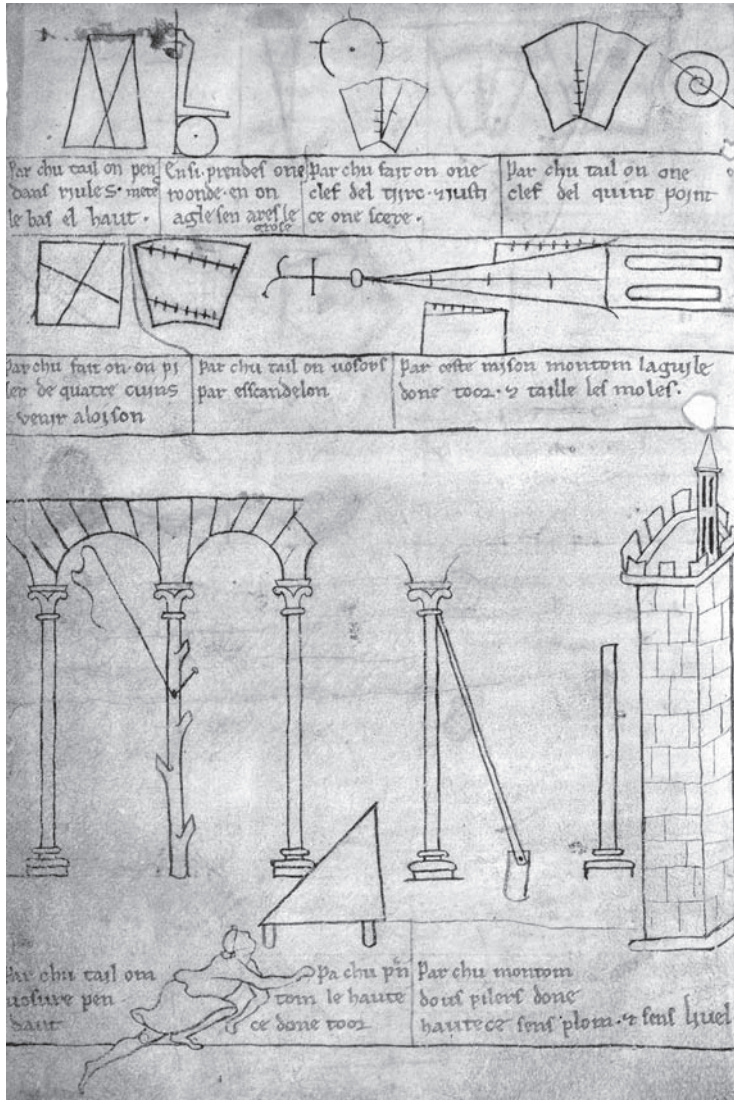 Par chu tail on pen
dans riules. mete
le bas el haut.
Ensi prendes one
roonde. en on
agle sen ares le
grose
Par chu fait on one
clef del tirc. & justi
ce one scere.
Par chu tail on one
clef del quint point
Par chu fait on. on pi
ler de quatre cuins
venir a loison
Par chu tail on vosors
par esscandelon
Par ceste raison montom laguile
done toor. & taille les moles.
Par chu tail om
vosure pen
daut
Pa chu pñ
tom le haute
ce done toor
Par chu montom
dous pilers done
hautece sens plom. & sens livel